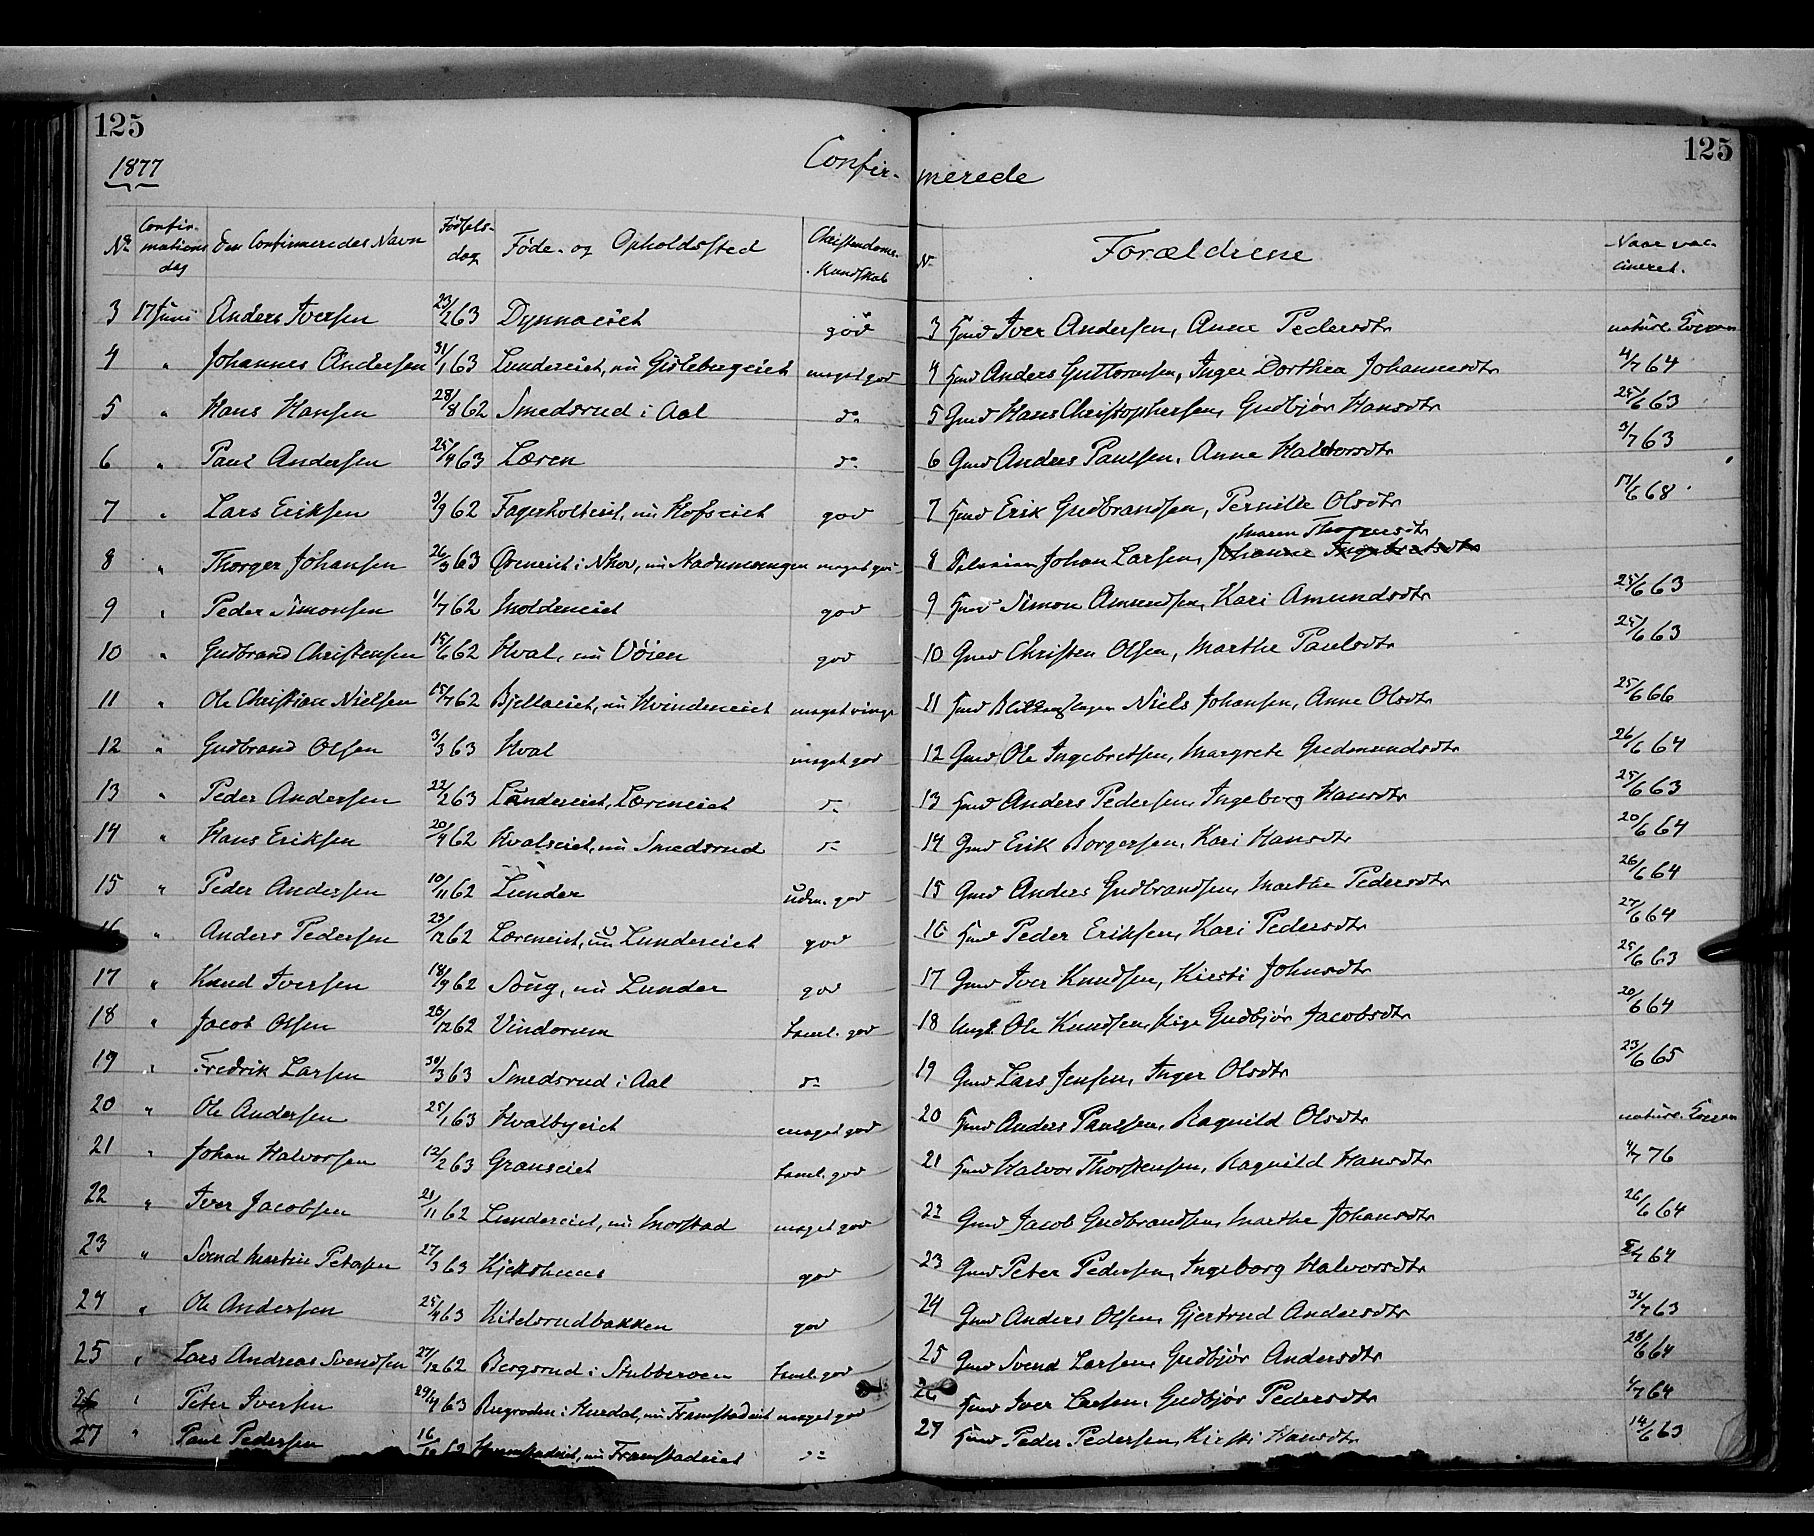 125
125
1877
Confir- merede
No Confir-mations dag Den Confirmeredes Navn Fødsels-dag Føde- og Opholdssted Christendoms-Kundskab No Forældrene Naar vac-cineret.
3 17 Juni Anders Iversen 23/2 63 Dynnaeiet god 3 Hmd Iver Andersen, Anne Pedersdtr naturl.
4 " Johannes Andersen 31/1 63 Lundereiet, nu Gislebergeiet meget god 4 Hmd Anders Guttormsen, Inger Dorthea Johannesdtr 4/7 64
5 " Hans Hansen 28/8 62 Smedsrud i Aal do 5 Gmd Hans Christophersen, Gudbjør Hansdtr 25/6 63
6 " Paul Andersen 25/4 63 Læren do 6 Gmd Anders Paulsen, Anne Halvorsdtr 3/7 63
7 " Lars Eriksen 3/9 62 Fagerholteiet, nu Hofseiet god 7 Hmd Erik Gudbrandsen, Pernille Olsdtr 17/6 68
Maren Thorgersdtr
8 " Thorger Johansen 26/3 63 Øreneiet i nu meget god 8 Johan Larsen, Johanne Ingebretsdtr
9 " Peder Simonsen 1/7 62 Moldeneiet god 9 Hmd Simon Amundsen, Kari Amundsdtr 25/6 63
10 " Gudbrand Christensen 15/6 62 Hval, nu Vøien god 10 Gmd Christen Olsen, Marthe Paulsdtr 25/6 63
11 " Ole Christian Nielsen 15/7 62 Bjellaeiet, nu Hvindeneiet meget ringe 11 Hmd Blikkenslager Niels Johansen, Anne Olsdtr 25/6 66
12 " Gudbrand Olsen 3/3 63 Hval meget god 12 Gmd Ole Ingebretsen, Margrete Gudmundsdtr 26/6 64
13 " Peder Andersen 22/2 63 Lundereiet, Læreneiet do 13 Hmd Anders Pedersen, Ingeborg Hansdtr 25/6 63
14 " Hans Eriksen 20/4 62 Hvalseiet, nu Smedsrud do 14 Gmd Erik Borgersen, Kari Hansdtr 20/6 64
15 " Peder Andersen 10/11 62 Lunder udm. god 15 Gmd Anders Gudbrandsen, Marthe Pedersdtr 26/6 64
16 " Anders Pedersen 23/12 62 Læreneiet, nu Lundereiet god 16 Hmd Peder Eriksen, Kari Pedersdtr 27/6 64
17 " Knud Iversen 18/9 62 Soug, nu Lunder god 17 Gmd Iver Knudsen, Kirsti Johnsdtr 25/6 63
18 " Jacob Olsen 28/12 62 Vindorum taml. god 18 Ungk. Ole Knudsen, Pige Gudbjør Jacobsdtr 20/6 64
19 " Fredrik Larsen 30/3 63 Smedsrud i Aal do 19 Gmd Lars Jensen, Inger Olsdtr 23/6 65
20 " Ole Andersen 25/1 63 Hvalbyeiet meget god 20 Hmd Anders Paulsen, Ragnild Olsdtr naturl.
21 " Johan Halvorsen 12/2 63 Granseiet taml. god 21 Hmd Halvor Thorstensen, Ragnild Hansdtr 4/7 76
22 " Iver Jacobsen 21/11 62 Lundereiet, nu Morstad meget god 22 Gmd Jacob Gudbrandsen, Marthe Johansdtr 26/6 64
23 " Svend Martin Petersen 27/3 63 Kjekshuus god 23 Gmd Peter Pedersen, Ingeborg Halvorsdtr /7 64
24 " Ole Andersen 25/4 63 Kitelsrudbakken god 24 Gmd Anders Olsen, Gjertrud Andersdtr 31/7 63
25 " Lars Andreas Svendsen 27/12 62 Bergsrud i Stubberoen taml. god 25 Gmd Svend Larsen, Gudbjør Andersdtr 28/6 64
26 " Peter Iversen 29/4 63 i Hurdal, nu Framstadeiet meget god 26 Hmd Iver Larsen, Gudbjør Pedersdtr 4/7 64
27 " Paul Pedersen 16/12 62 nu Framstadeiet do 27 Hmd Peder Pedersen, Kirsti Hansdtr 14/6 63